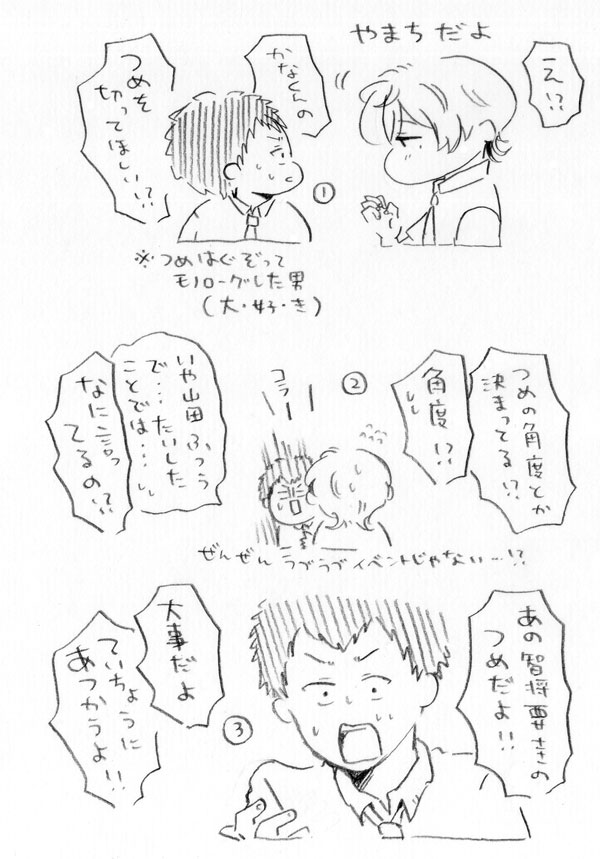 やまちだよ
え!?
かなくんの
つめを
切ってほしい!?
①
※つめはぐぞって
モノローグした男
(大・好・き)
②
つめの角度とか
決まってる!?
角度!?
コラーー
いや山田ふつう
で…たいした
ことでは…
なに言っ
てるの!?
ぜんぜんラブラブイベントじゃない…!?
③
あの智将要圭の
つめだよ!!
大事だよ
ていちょうに
あつかうよ!!